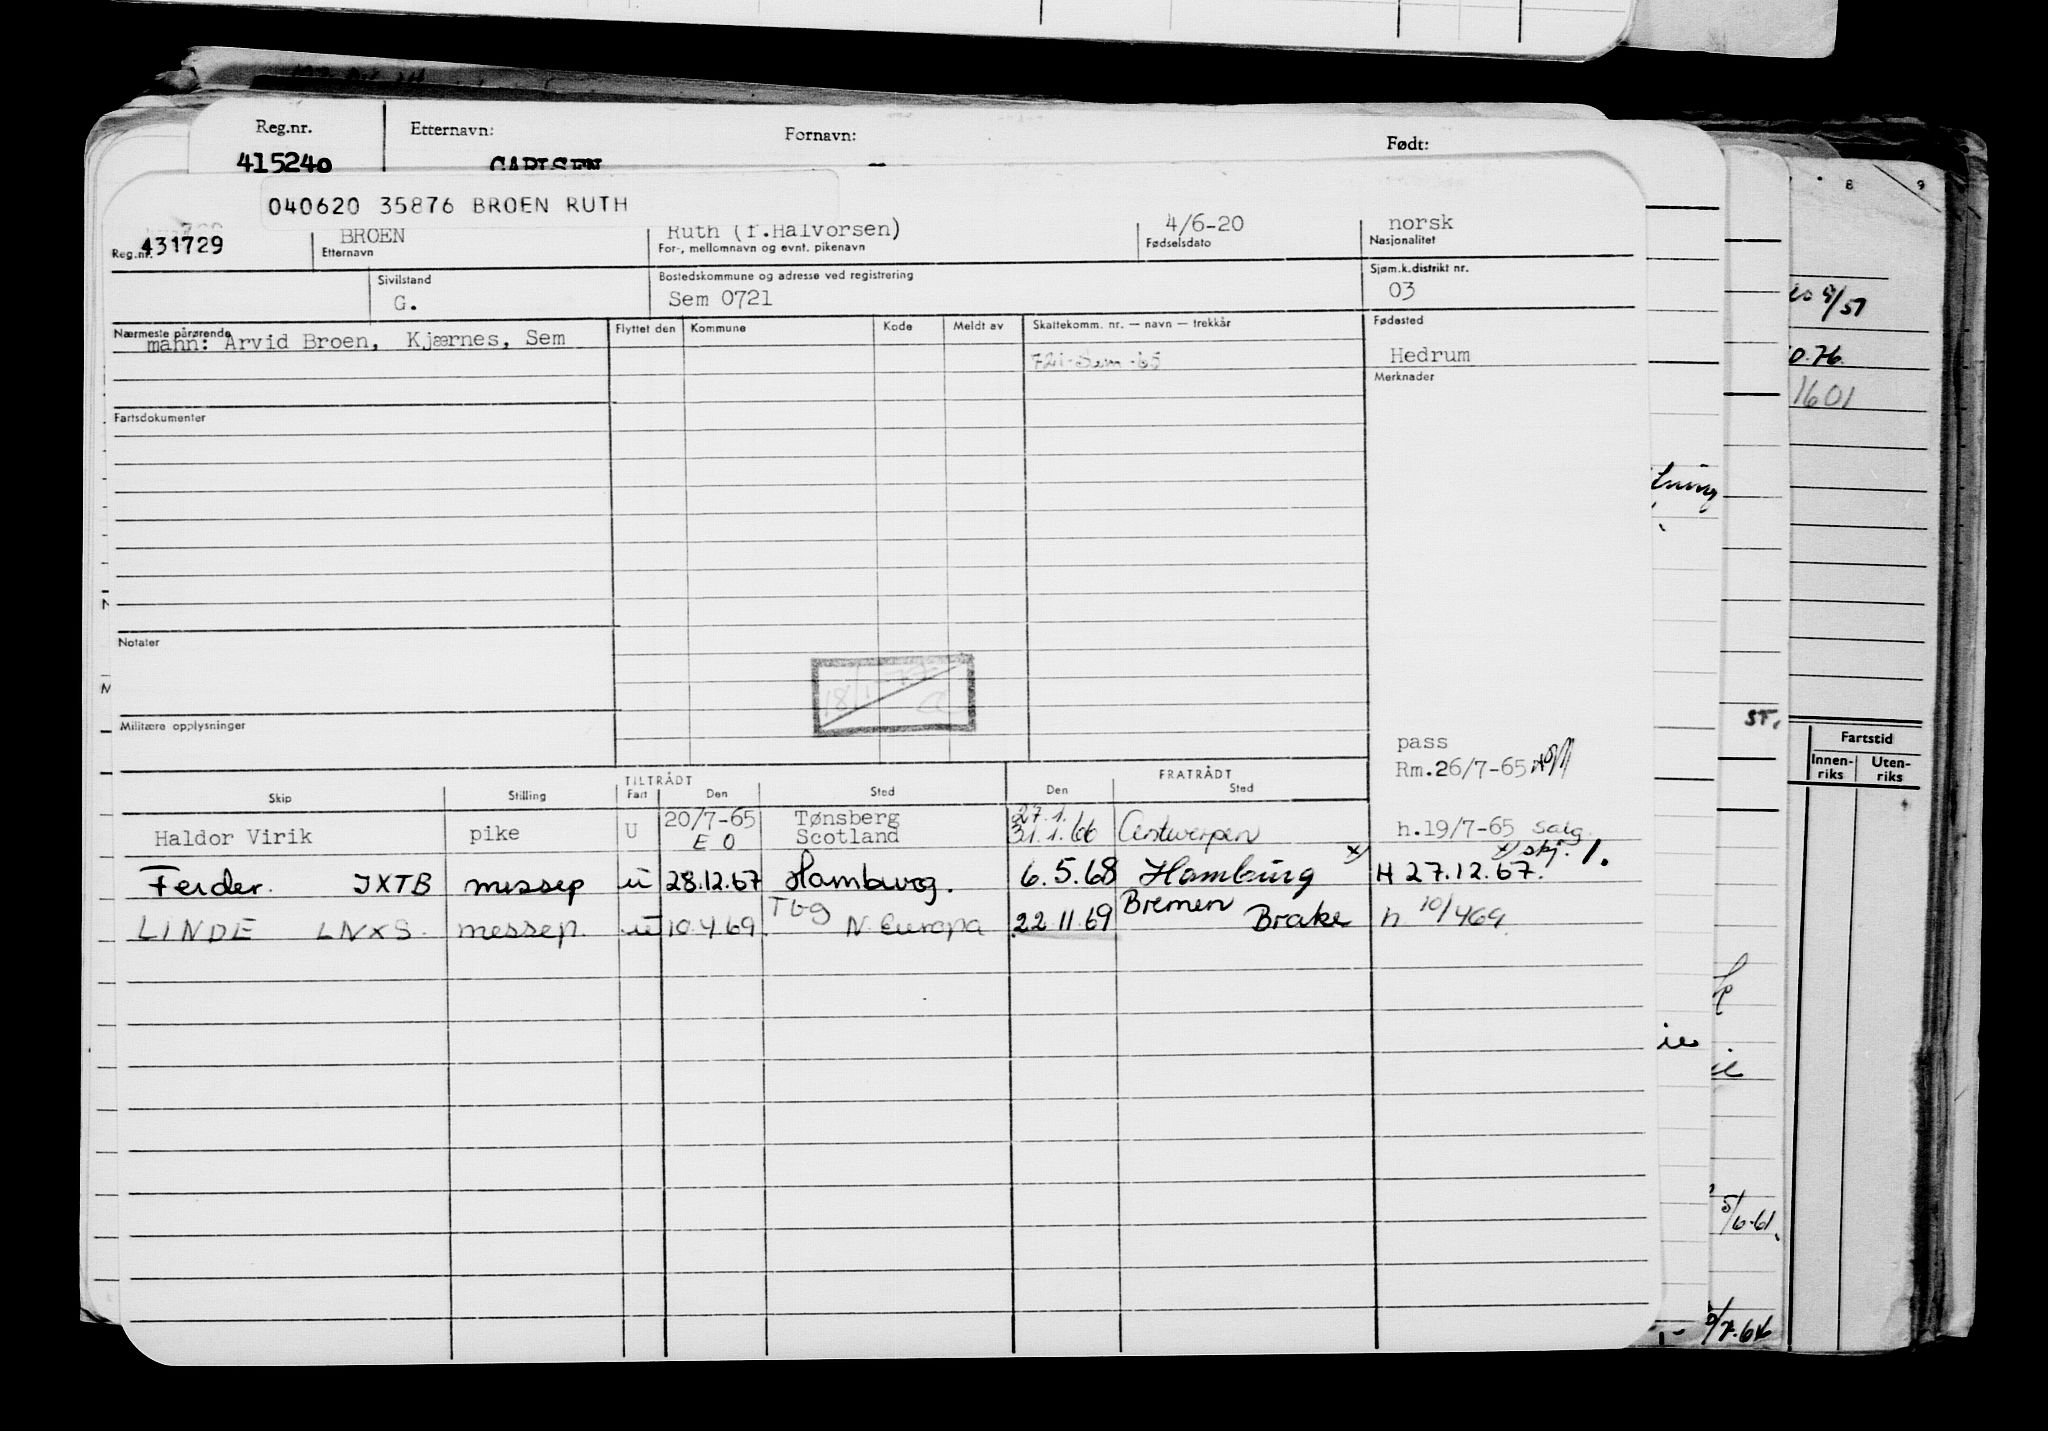 Reg.nr. Etternavn: Fornavn: Født:
415240 CARLSEN
040620 35876 BROEN RUTH
431729 BROEN Ruth (f.Halvorsen) 4/6-20 norsk
Reg.nr. Etternavn For-, mellomnavn og evnt. pikenavn Fødselsdato Nasjonalitet
Sivilstand Bostedskommune og adresse ved registrering Sjøm.k.distrikt nr.
G. Sem 0721 03
Nærmeste pårørende Flyttet den Kommune Kode Meldt av Skattekomm. nr. — navn — trekkår Fødested
mann: Arvid Broen, Kjærnes, Sem
721-Sem-65 Hedrum
Merknader
Fartsdokumenter
Notater
18/1-77
Militære opplysninger
pass
Rm.26/7-65
TILTRÅDT FRATRÅDT
Skip Stilling Fart Den Sted Den Sted
Haldor Virik pike U 20/7-65 E O Tønsberg Scotland 27.1. 31.1.66 Antwerpen h.19/7-65 salg.
x) x) skj. 1.
Ferder. JXTB messep u 28.12.67 Hamburg. 6.5.68 Hamburg H 27.12.67.
LINDE LNXS. messep. u 10.4.69. Tbg N. Europa 22.11.69 Bremen Brake h 10/4 69
8 9
5/51
0.76.
1601
ST.
Fartstid
Innenriks Utenriks
5/6-61.